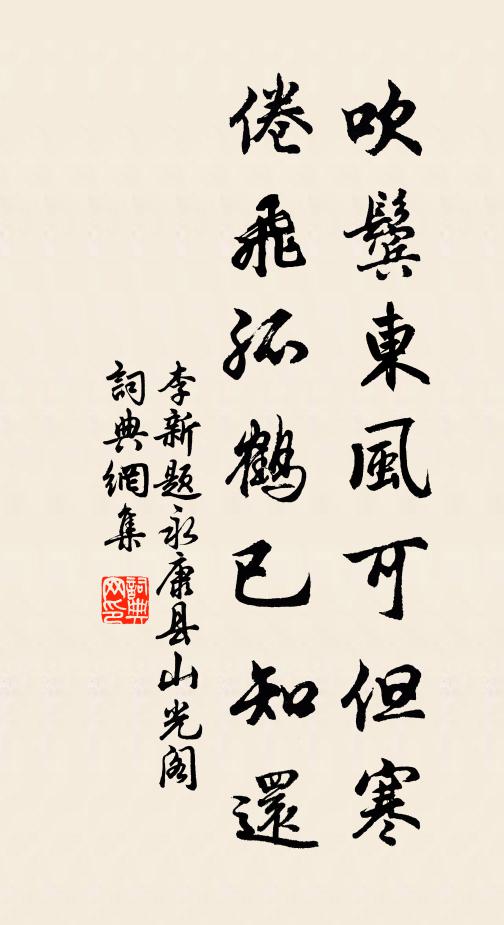 吹鬢東風可但寒
倦飛孤鶴已知還
李新題永康县山光阁
詞典網集
詞典
网印